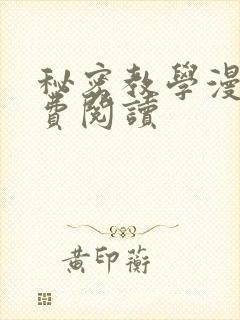 秘密教學漫
費閱讀
黃印蘅